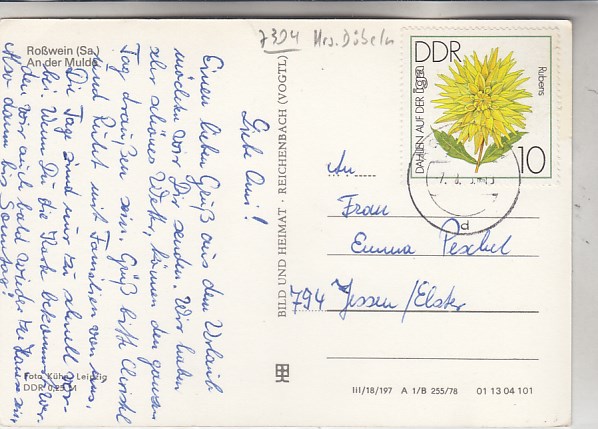 7304 Krs. Döbeln
Roßwein (Sa.)
An der Mulde
Liebe Omi!
Einen lieben Gruß aus dem Urlaub
möchten wir Dir senden. Wir haben
sehr schönes Wetter, können den ganzen
Tag draußen sein. Grüß bitte Christel
und Rüdi mit Familien von uns.
Die Tage sind nur zu schnell vor-
bei. Wenn Du die Karte bekommst, wer-
den wir auch bald wieder zu Hause sein.
Also dann bis Sonntag!
Foto Kühn, Leipzig
DDR 0,25 M
BILD UND HEIMAT · REICHENBACH (VOGTL)
DDR
DAHLIEN AUF DER
Rubens
10
An
Frau
Emma Peschel
794 Jessen/Elster
III/18/197 A 1/B 255/78 01 13 04 101